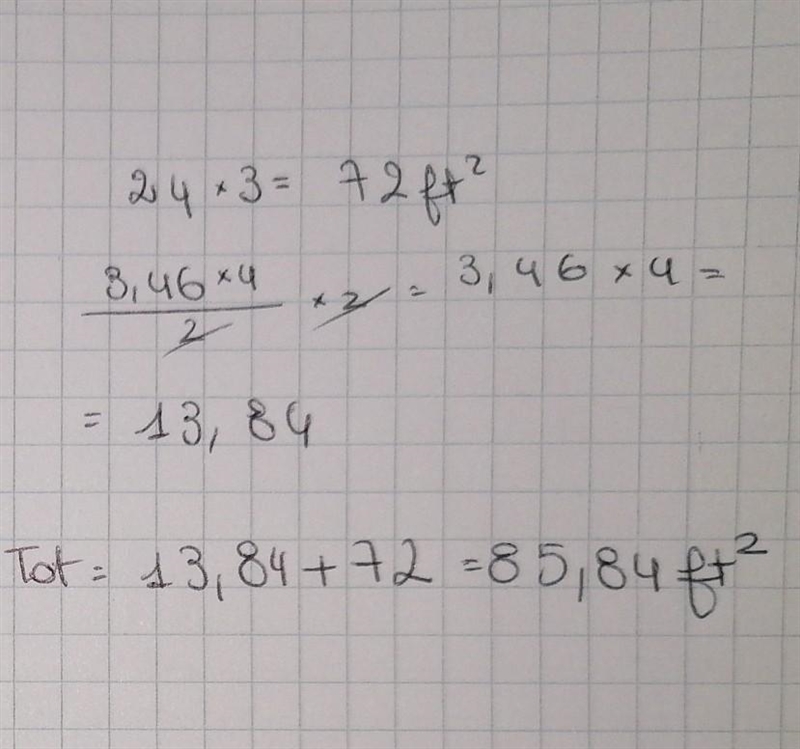 24 × 3 = 72 ft²
3,46 × 4 / 2 × 2 = 3,46 × 4 =
= 13,84
Tot = 13,84 + 72 = 85,84 ft²